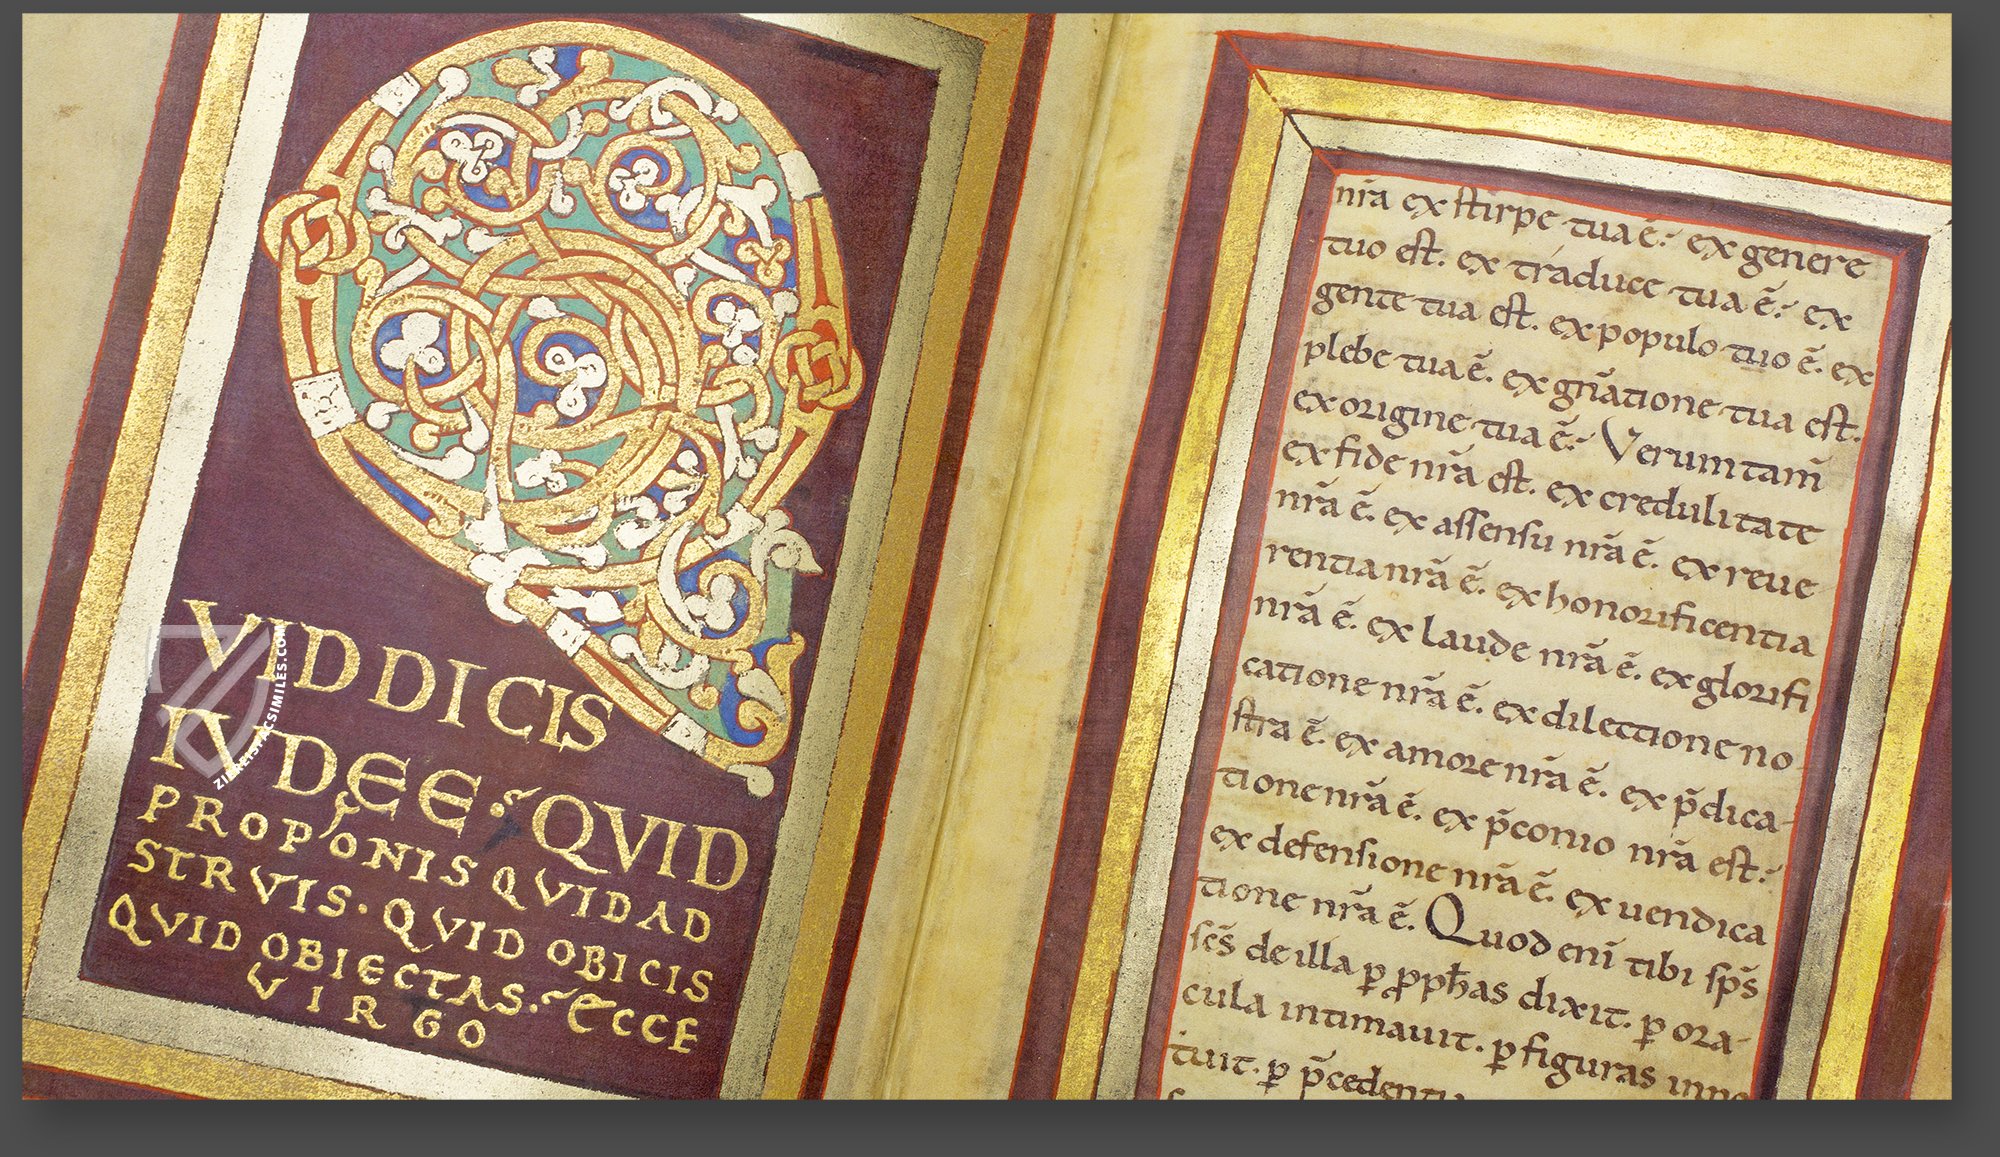 Q
VID DICIS
IVDEE·QVID
PROPONIS QVIDAD
STRVIS·QVID OBICIS
QVID OBIECTAS·ECCE
VIRGO
ZIEREISFACSIMILES.COM
nr̄a ex stirpe tua ē: ex genere
tuo est. ex traduce tua ē: ex
gente tua est. ex populo tuo ē. ex
plebe tua ē. ex gn̄atione tua est.
ex origine tua ē: Verumtam̄
ex fide nr̄a est. ex credulitate
nr̄a ē. ex assensu nr̄a ē. ex reue
rentia nr̄a ē. ex honorificentia
nr̄a ē. ex laude nr̄a ē. ex glorifi
catione nr̄a ē. ex dilectione no
stra ē. ex amore nr̄a ē. ex p̄dica-
tione nr̄a ē. ex p̄conio nr̄a est:
ex defensione nr̄a ē. ex uendica
tione nr̄a ē. Quod eni̅ tibi sp̄s
sc̄s de illa ꝑ ꝓph̄as dixit. ꝑ ora-
cula intimauit. ꝑ figuras inno
tuit. ꝑ p̄cedentia